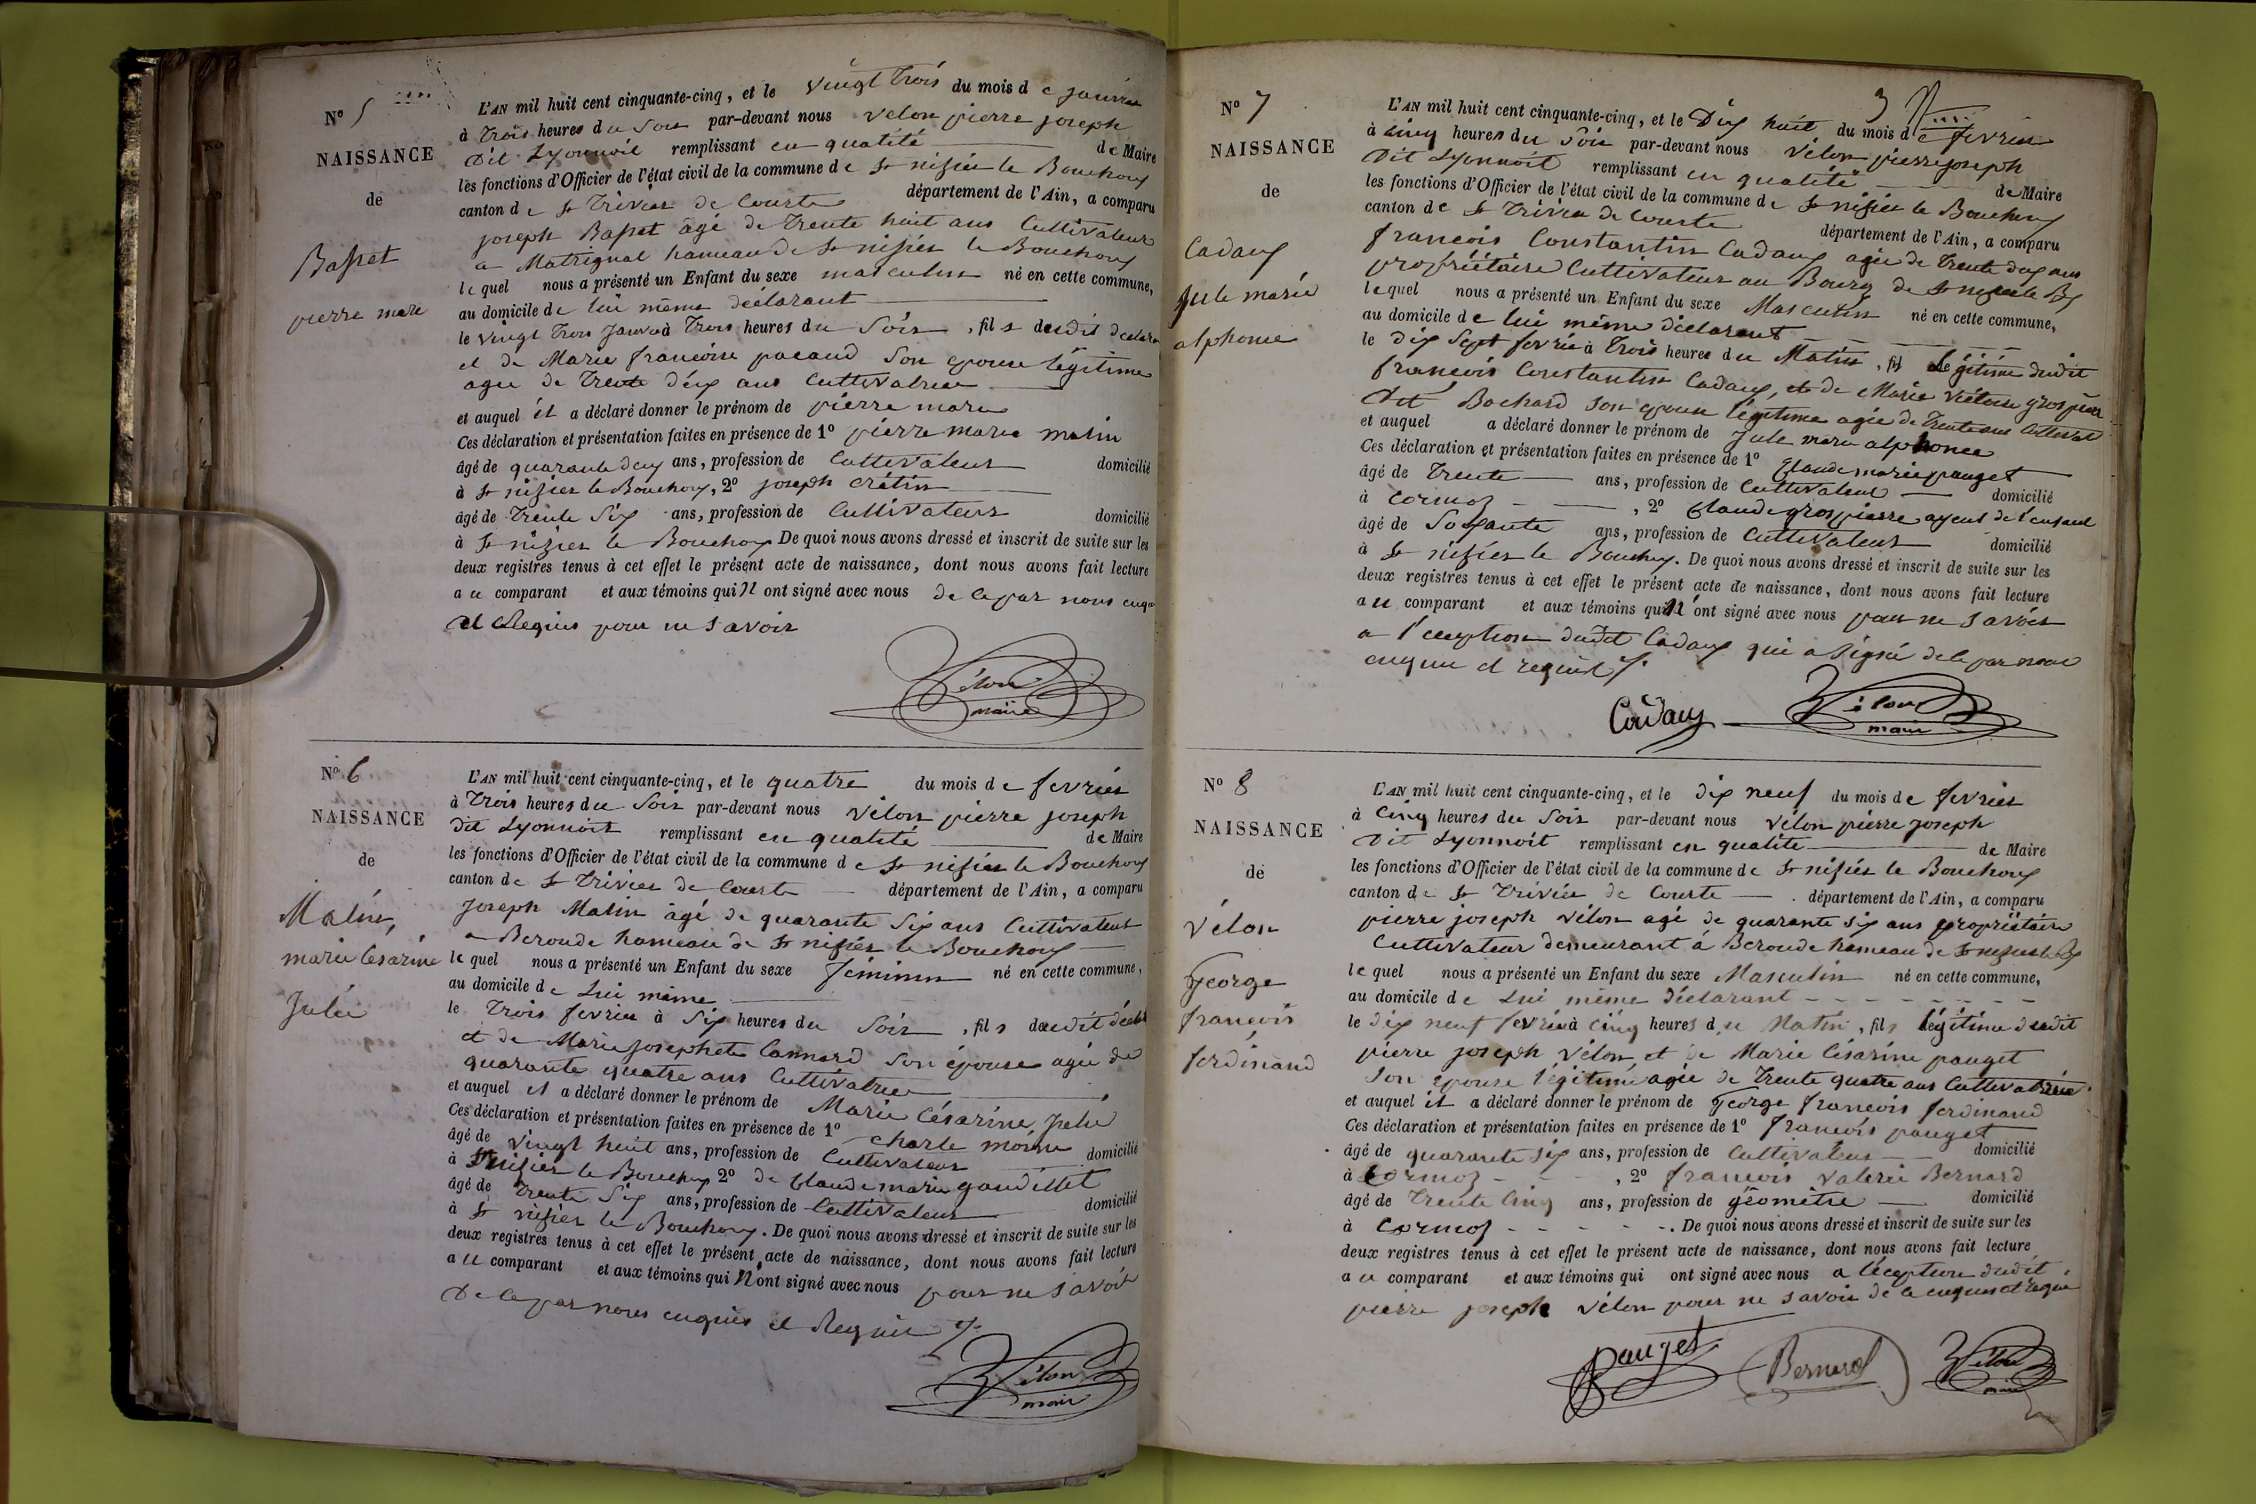 N° 5
NAISSANCE
de
Basset
pierre marie
L'AN mil huit cent cinquante-cinq, et le vingt trois du mois de janvier
à trois heures du soir par-devant nous vélon pierre joseph
dit Lyonnoit remplissant en qualité de Maire
les fonctions d'Officier de l'état civil de la commune de St nisier le Bouchoux
canton de St trivier de Courte département de l'Ain, a comparu
joseph Basset âgé de trente huit ans Cultivateur
a Matrignat hameau de St nisier le Bouchoux
lequel nous a présenté un Enfant du sexe masculin né en cette commune,
au domicile de lui même déclarant
le vingt trois janvier à trois heures du soir, fils dudit déclara
et de Marie francoise pacaud son épouse légitime
agée de trente deux ans cultivatrice
et auquel il a déclaré donner le prénom de pierre marie
Ces déclaration et présentation faites en présence de 1° pierre marie matin
âgé de quarante deux ans, profession de Cultivateur domicilié
à St nisier le Bouchoux, 2° joseph crétin
âgé de trente six ans, profession de Cultivateur domicilié
à St nisier le Bouchoux De quoi nous avons dressé et inscrit de suite sur les
deux registres tenus à cet effet le présent acte de naissance, dont nous avons fait lecture
au comparant et aux témoins qui n ont signé avec nous de ce par nous enquis
et Requis pour ne savoir
Vélon
maire
N° 6
NAISSANCE
de
Matin,
marie Césarine
Julie
L'AN mil huit cent cinquante-cinq, et le quatre du mois de fevrier
à trois heures du soir par-devant nous vélon pierre joseph
dit Lyonnoit remplissant en qualité de Maire
les fonctions d'Officier de l'état civil de la commune de St nisier le Bouchoux
canton de St trivier de Courte département de l'Ain, a comparu
joseph Matin âgé de quarante six ans Cultivateur
a Beroude hameau de St nisier le Bouchoux
lequel nous a présenté un Enfant du sexe féminin né en cette commune,
au domicile de Lui même
le trois fevrier à six heures du soir, fils dudit décla
et de Marie josephete Cannard son épouse agée de
quarante quatre ans Cultivatrice
et auquel il a déclaré donner le prénom de Marie Césarine Julie
Ces déclaration et présentation faites en présence de 1° charle
âgé de vingt huit ans, profession de Cultivateur domicilié
à St nisier le Bouchoux 2° de Claude marie gaudillet
âgé de trente six ans, profession de Cultivateur domicilié
à St nisier le Bouchoux. De quoi nous avons dressé et inscrit de suite sur les
deux registres tenus à cet effet le présent acte de naissance, dont nous avons fait lecture
au comparant et aux témoins qui n'ont signé avec nous pour ne savoir
de ce par nous enquis et Requis
Vélon
maire
3
N° 7
NAISSANCE
de
Cadaux
Jule marie
alphonce
L'AN mil huit cent cinquante-cinq, et le Dix huit du mois de fevrier
à cinq heures du soir par-devant nous vélon pierre joseph
dit Lyonnoit remplissant en qualité de Maire
les fonctions d'Officier de l'état civil de la commune de St nisier le Bouchoux
canton de St trivier de Courte département de l'Ain, a comparu
francois Constantin Cadaux agée de trente deux ans
propriétaire Cultivateur au Bourg de St nisier le Bx
lequel nous a présenté un Enfant du sexe Masculin né en cette commune,
au domicile de lui même déclarant
le dix sept fevrier à trois heures du Matin, fils Légitime dudit
francois Constantin Cadaux, et de Marie victoire grospierre
dit Bachard son épouse légitime agée de trente ans Cultivat
et auquel a déclaré donner le prénom de Jule marie alphonce
Ces déclaration et présentation faites en présence de 1° Claude marie pauget
âgé de trente ans, profession de Cultivateur domicilié
à cormoz, 2° Claude grospierre ayeul de l'enfant
âgé de Soixante ans, profession de Cultivateur domicilié
à St nisier le Bouchoux. De quoi nous avons dressé et inscrit de suite sur les
deux registres tenus à cet effet le présent acte de naissance, dont nous avons fait lecture
au comparant et aux témoins qui n'ont signé avec nous pour ne savoir
a l'éception dudit Cadaux qui a signé de ce par nous
enquis et requis
Cadaux
Vélon
maire
N° 8
NAISSANCE
de
vélon
George
francois
ferdinand
L'AN mil huit cent cinquante-cinq, et le dix neuf du mois de fevrier
à Cinq heures du Soir par-devant nous vélon pierre joseph
dit Lyonnoit remplissant en qualité de Maire
les fonctions d'Officier de l'état civil de la commune de St nisier le Bouchoux
canton de St trivier de Courte département de l'Ain, a comparu
pierre joseph vélon agé de quarante six ans propriétaire
Cultivateur demeurant à Beroude hameau de St nisier le Bx
lequel nous a présenté un Enfant du sexe Masculin né en cette commune,
au domicile de Lui même déclarant
le dix neuf fevrier à cinq heures du Matin, fils légitime dudit
pierre joseph vélon et de Marie Césarine pauget
son épouse légitime agée de trente quatre ans Cultivatrice
et auquel il a déclaré donner le prénom de George francois ferdinand
Ces déclaration et présentation faites en présence de 1° francois pauget
âgé de quarante six ans, profession de Cultivateur domicilié
à Cormoz, 2° francois valerie Bernard
âgé de trente cinq ans, profession de géomètre domicilié
à cormoz. De quoi nous avons dressé et inscrit de suite sur les
deux registres tenus à cet effet le présent acte de naissance, dont nous avons fait lecture
au comparant et aux témoins qui ont signé avec nous a l'éception dudit
pierre joseph vélon pour ne savoir de ce enquis et requis
Pauget
Bernard
Vélon
maire